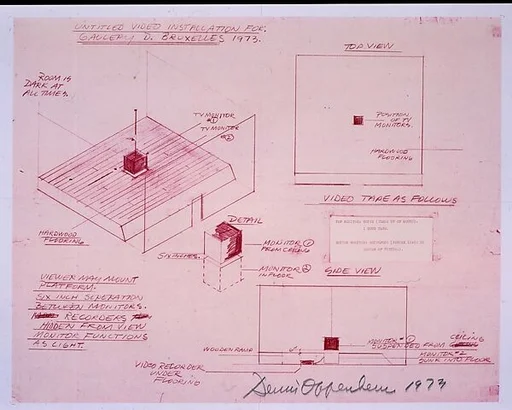 UNTITLED VIDEO INSTALLATION FOR.
GALLERY D. BRUXELLES 1973.
TOP VIEW
ROOM IS
DARK AT
ALL TIMES.
TV MONITOR
#1
TV MONITOR
#2
POSITION
OF TV
MONITORS.
HARDWOOD
FLOORING
VIDEO TAPE AS FOLLOWS
DETAIL
HARDWOOD
FLOORING.
SIX INCHES.
MONITOR 1
FROM CEILING
MONITOR 2
IN FLOOR
SIDE VIEW
VIEWER MAY MOUNT
PLATFORM.
SIX INCH SEPERATION
BETWEEN MONITORS.
RECORDERS
HIDDEN FROM VIEW
MONITOR FUNCTIONS
AS LIGHT.
WOODEN RAMP
MONITOR #1 CEILING
SUSPENDED FROM
MONITOR #2
SUNK INTO FLOOR
VIDEO RECORDER
UNDER
FLOORING
Dennis Oppenheim 1973